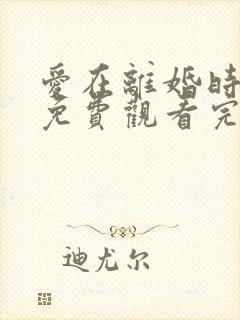 愛在離婚時
免費觀看完
迪尤尔